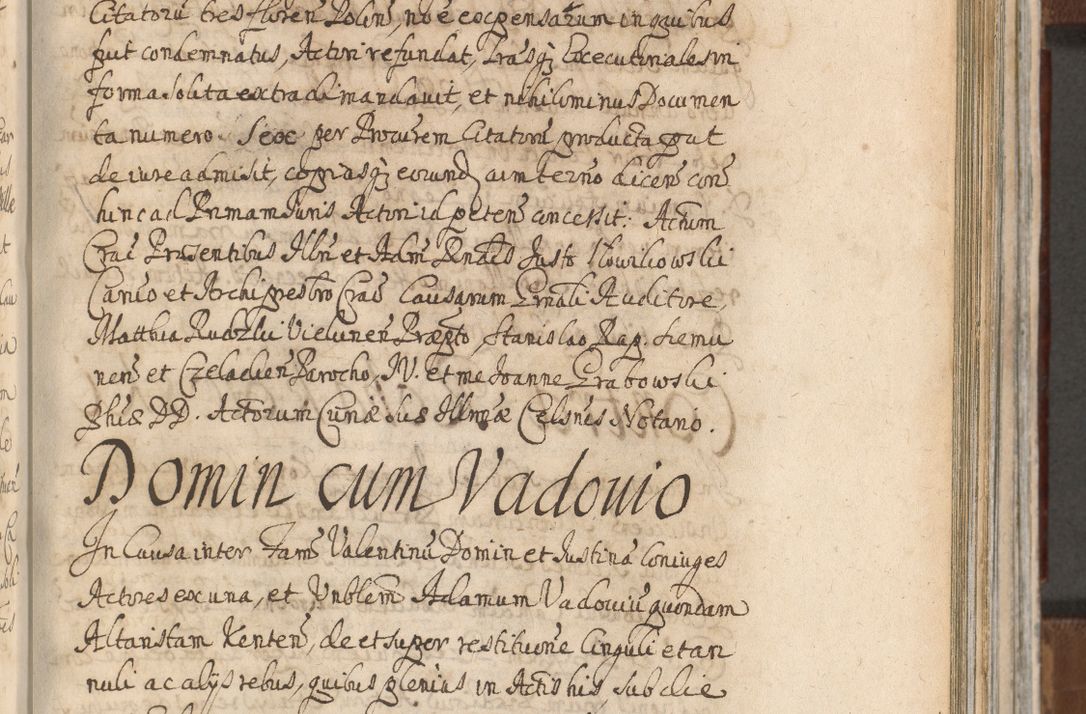 Citatorū tres floren̄ Polon̄, no e expensarum in quibus
put condemnatus, Actori refundat, Prasq; Executinales in
forma solita extradi mandavit, et nihilominus Documen
ta numero Sex per Procurem Citatorū producta put
de iure admisit, copiasq; eorund cum termo dicen con
hinc ad Primam Juris Actori id peten̄ concessit. Actum
Crac Præsentibus Illri et Adm Rndis Justo Slowikowski
Canco et Archipresbro Crac Causarum Gnali Auditore,
Matthia Rudzki Vielunen Præpto, Stanislao Rap. Siemu
nen et Czeladien Parocho, JV. et me Joanne Grabowski
Phiæ DD. Actorum Curiæ suæ Illmæ Celsnis Notario.
Domin cum Vadovio
In Causa inter Fams Valentinū Domin et Justinā Coniuges
Actores ex una, et Vnblem Adamum Vadoviū quondam
Altaristam Kenten, de et super restitutione Cinguli et an
nuli ac alijs rebus, quibus plenius in Actis his sub die